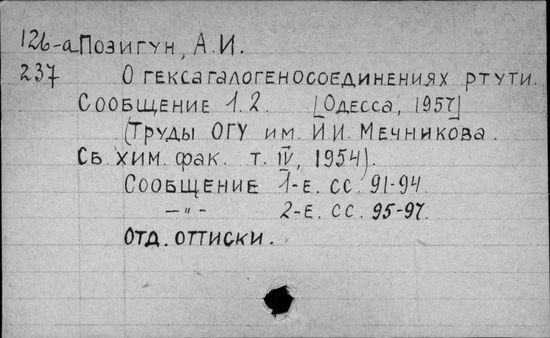 126-а Позигун, А.И.
237 О гексагалогеносоединениях ртути.
Сообщение 1.2. [Одесса, 1957]
(Труды ОГУ им. И.И. Мечникова.
Сб. хим. фак. т. IV, 1954).
Сообщение 1-е. сс. 91-94.
—"— 2-е. сс. 95-97.
Отд. оттиски.